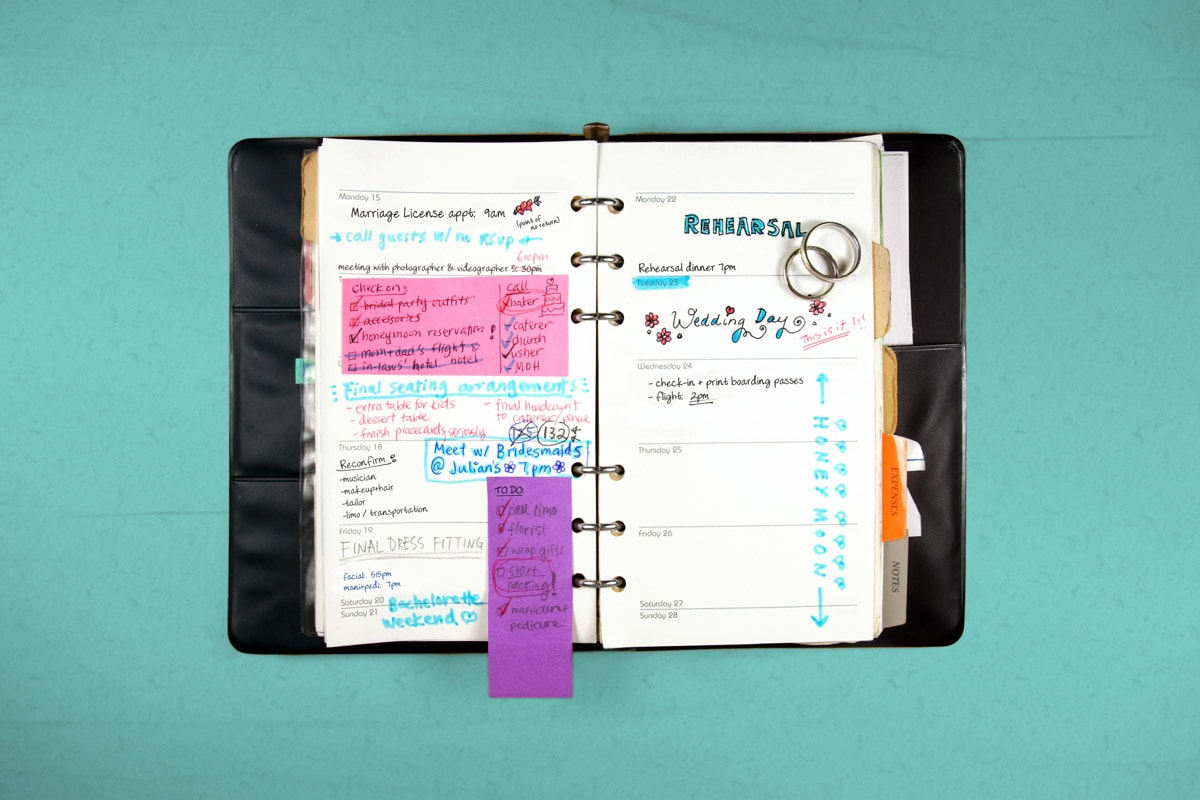 Monday 15
Marriage License appt: 9am
(point of
no return)
call guests w/ no RSVP
6:00pm
meeting with photographer & videographer 5:30pm
Check on:
bridal party outfits
accessories
honeymoon reservation!
mom+dad's flight &
in-laws' hotel hotel
call
baker
caterer
church
usher
MOH
Final seating arrangements
- extra table for kids
- dessert table
- finish placecards, seriously
- final headcount
to caterer/venue
125 132
Thursday 18
Reconfirm:
-musician
-makeup+hair
-tailor
-limo / transportation
Meet w/ Bridesmaids
@ Julian's 7pm
Friday 19
FINAL DRESS FITTING
facial: 515pm
mani+pedi: 7pm
Saturday 20
Sunday 21
Bachelorette
Weekend
TO DO:
call limo
florist
wrap gifts
start
packing!
manicure+
pedicure
Monday 22
REHEARSAL
Rehearsal dinner 7pm
Tuesday 23
Wedding Day
This is it!!!
Wednesday 24
- check-in + print boarding passes
- flight: 2pm
HONEY MOON
Thursday 25
Friday 26
Saturday 27
Sunday 28
EXPENSES
NOTES